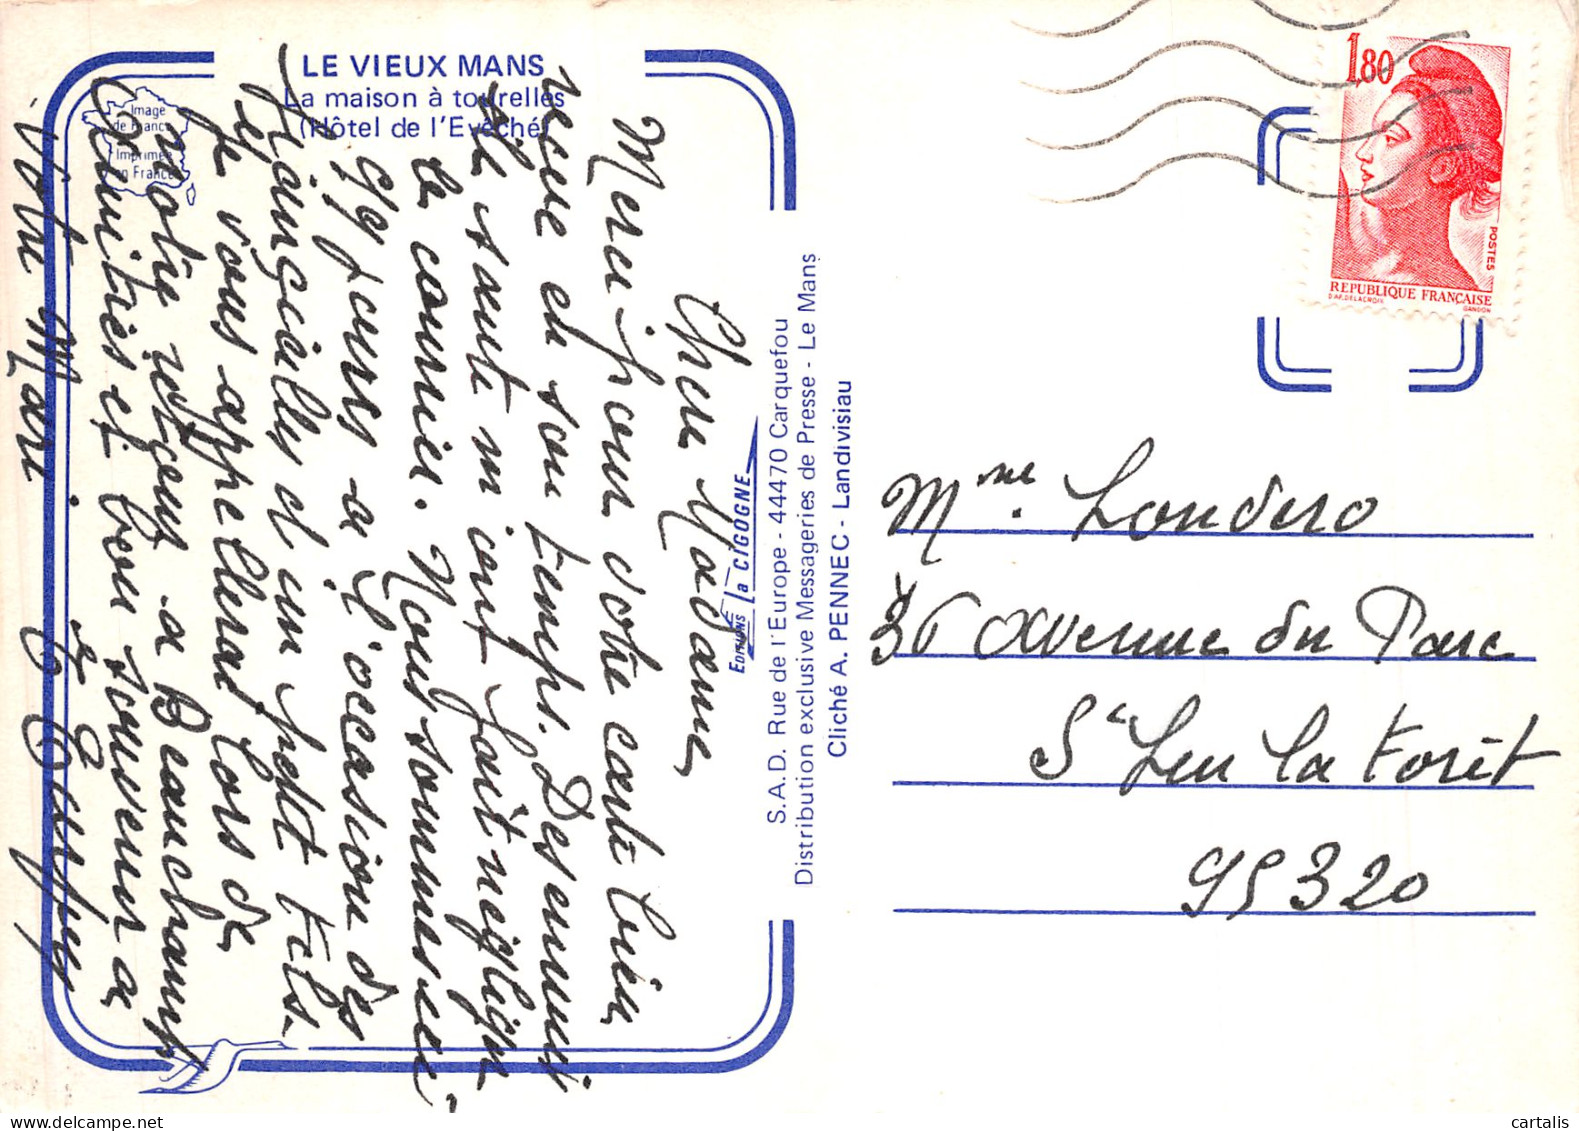 LE VIEUX MANS
La maison à tourelles
(Hôtel de l'Evêché)
Image
de France
Imprimée
en France
Chere Madame,
Merci pour votre carte bien
recue en son temps. Des ennuis
de santé m'ont fait négliger
le courrier. Nous sommes en
à l'occasion des
Fiançailles d'un petit fils.
Je vous appellerai lors de
notre retour a Beauchamp
Amitiés et bon souvenir a
votre Mari.
EDITIONS La CIGOGNE
S.A.D. Rue de l'Europe - 44470 Carquefou
Distribution exclusive Messageries de Presse - Le Mans
Cliché A. PENNEC - Landivisiau
1,80
POSTES
REPUBLIQUE FRANÇAISE
D'AP. DELACROIX
GANDON
Mme. Londero
36 avenue du Parc
St Leu la Forêt
95320
cartalis